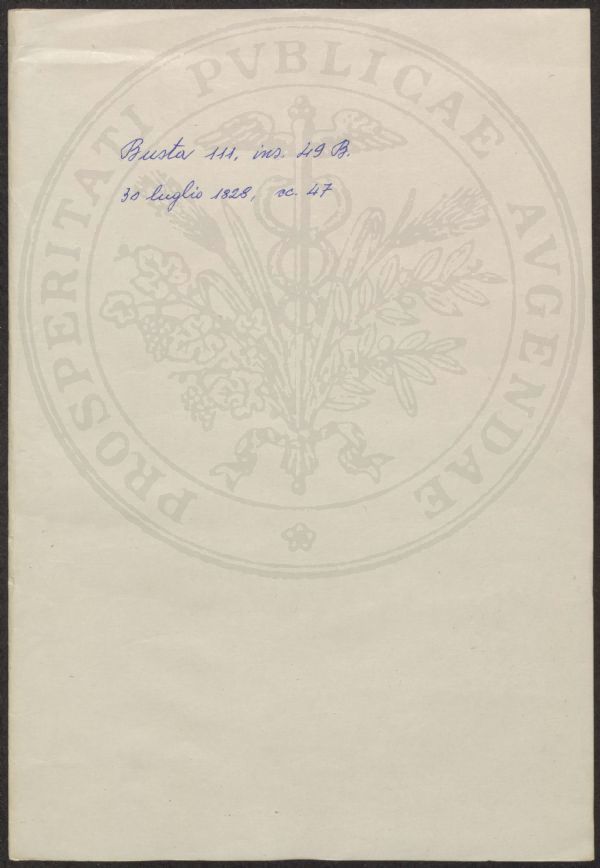 PROSPERITATI PVBLICAE AVGENDAE
Busta 111, ins. 49 B.
30 luglio 1828, cc. 47